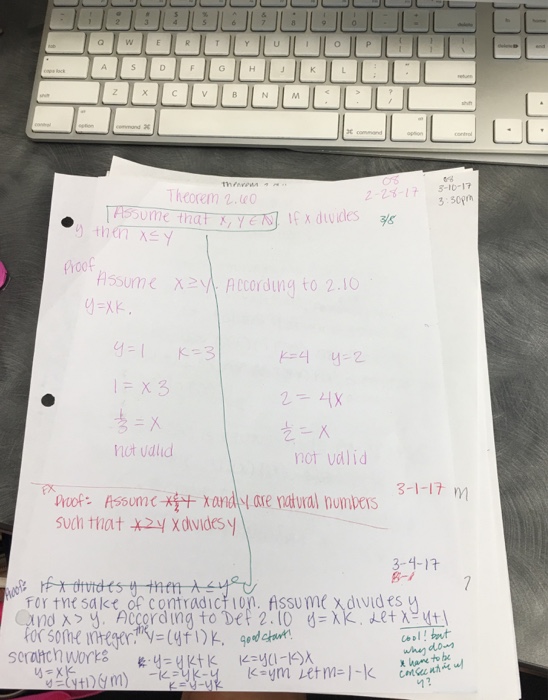 Q W E R T Y U I O P
caps lock A S D F G H J K L return
shift Z X C V B N M shift
control option command ⌘ ⌘ command option control
Theorem 2.40
08
2-28-17
3/5
3-10-17
3:50pm
Assume that x, y ∈ N. If x divides
y then x ≤ y
Proof
Assume x ≥ y. According to 2.10
y = xk.
y=1 k=3
k=4 y=2
1 = x 3
2 = 4x
1/3 = x
1/2 = x
not valid
not valid
3-1-17 m
Proof: Assume x and y are natural numbers
such that x≥y x divides y
3-4-17
?
Proof: If x divides y then x ≤ y
For the sake of contradiction. Assume x divides y
and x > y. According to Def 2.10 y = xk. Let x = y+1
for some integer. y = (y+1)k. good start!
cool! but
why does
x have to be
consecutive w/
y?
scratch work:
y = xk
y = (y+1)(ym)
k-y = yk+k
-k = yk-y
k = y-yk
k = y(1-k)x
k = ym Let m = 1-k